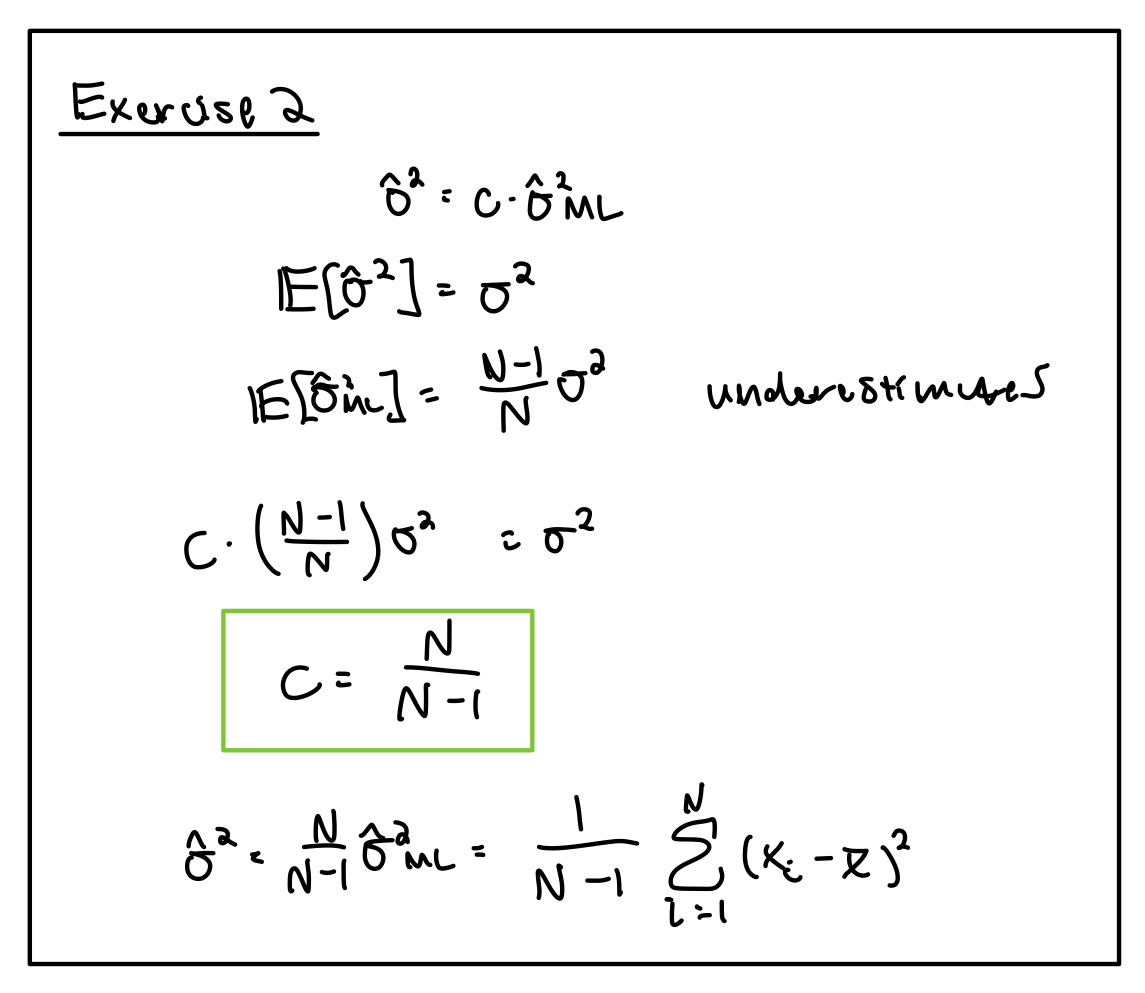 Exercise 2
σ̂² = C · σ̂²ML
𝔼[σ̂²] = σ²
𝔼[σ̂²ML] = (N-1)/N σ² underestimates
C · ((N-1)/N) σ² = σ²
C = N/(N-1)
σ̂² = N/(N-1) σ̂²ML = 1/(N-1) Σ_{i=1}^{N} (x_i - x̄)²